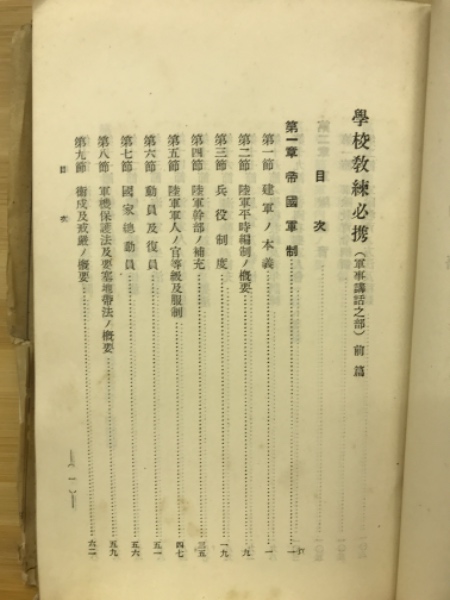 學校教練必携（軍事講話之部）前篇
目次
第一章 帝國軍制……一
第一節 建軍ノ本義……一
第二節 陸軍平時編制ノ概要……九
第三節 兵役制度……一九
第四節 陸軍幹部ノ補充……三五
第五節 陸軍軍人ノ官等級及服制……四七
第六節 動員及復員……五一
第七節 國家總動員……五六
第八節 軍機保護法及要塞地帶法ノ概要……五九
第九節 衞戍及戒嚴ノ概要……六二
目次
（一）